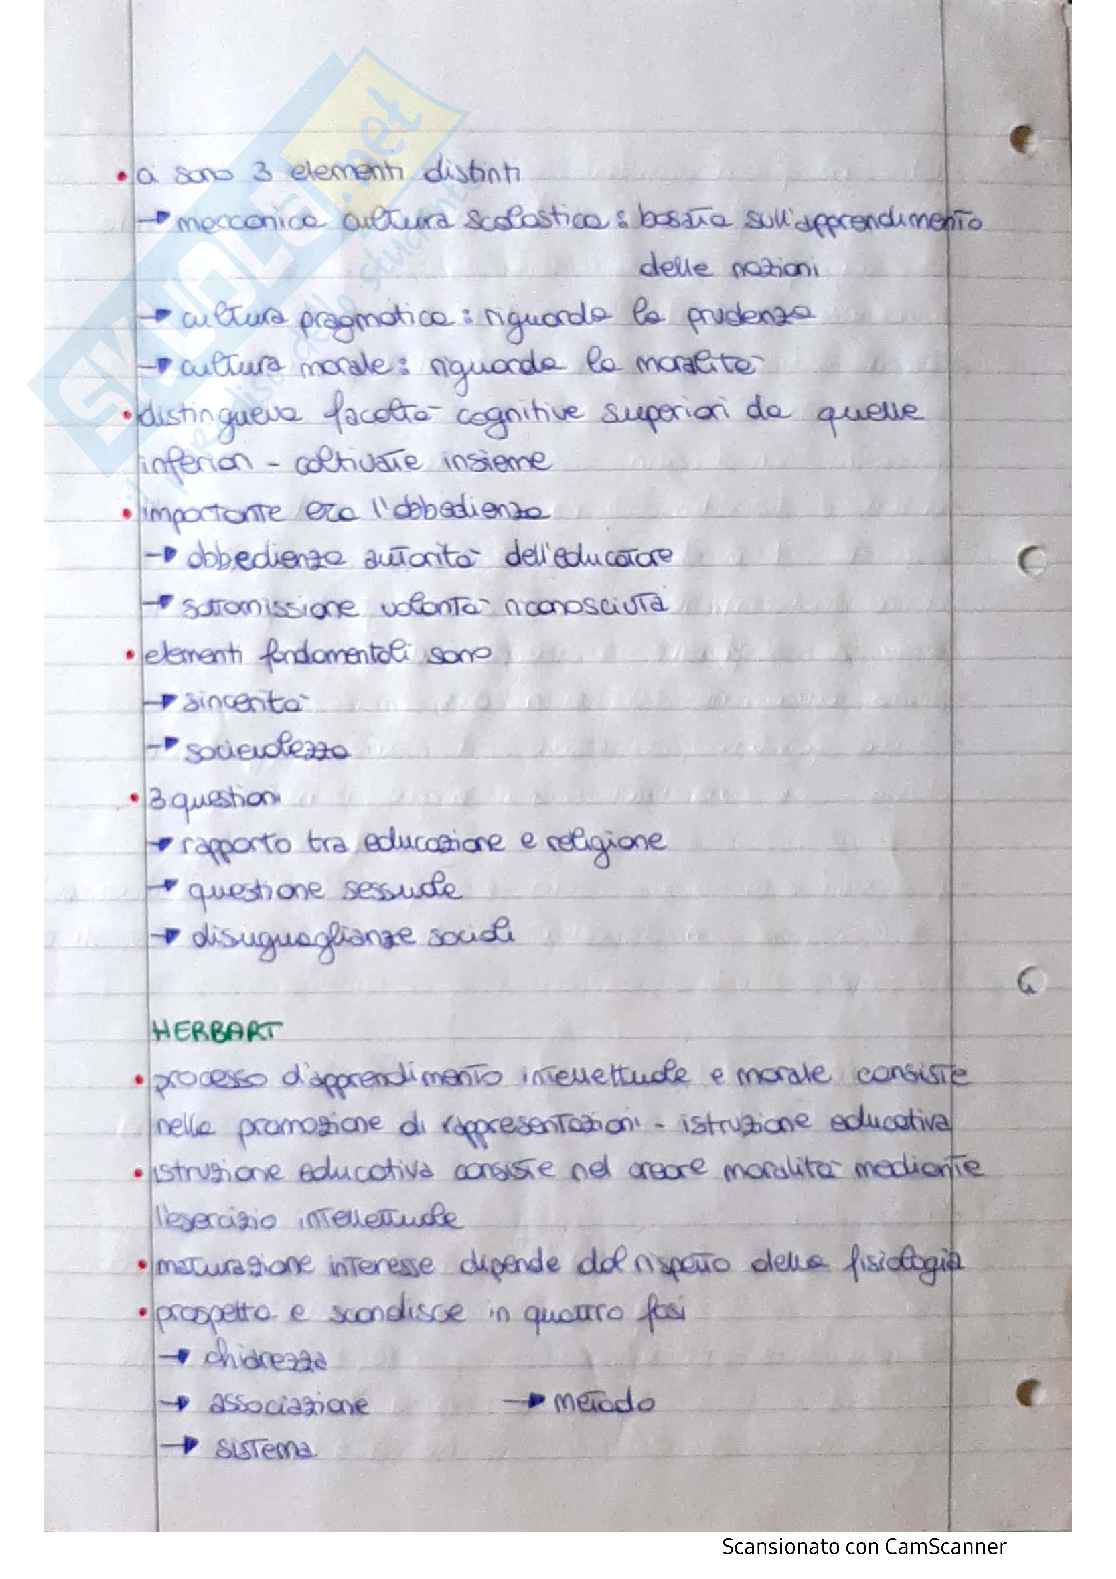 • ci sono 3 elementi distinti
→ meccanica cultura scolastica: basata sull'apprendimento
delle nozioni
→ cultura pragmatica: riguarda la prudenza
→ cultura morale: riguarda la moralità
• distingueva facoltà cognitive superiori da quelle
inferiori - coltivate insieme
• importante era l'obbedienza
→ obbedienza autorità dell'educatore
→ sottomissione volontà riconosciuta
• elementi fondamentali sono
→ sincerità
→ socievolezza
• 3 questioni
→ rapporto tra educazione e religione
→ questione sessuale
→ disuguaglianze sociali
HERBART
• processo d'apprendimento intellettuale e morale consiste
nella promozione di rappresentazioni - istruzione educativa
• istruzione educativa consiste nel creare moralità mediante
l'esercizio intellettuale
• maturazione interesse dipende dal rispetto della fisiologia
• prospetta e scandisce in quattro fasi
→ chiarezza
→ associazione → metodo
→ sistema
SKUOLA.net
Scansionato con CamScanner